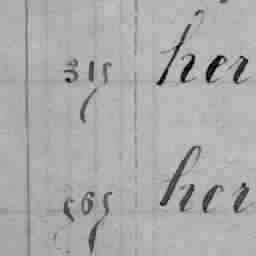 315 her
505 her